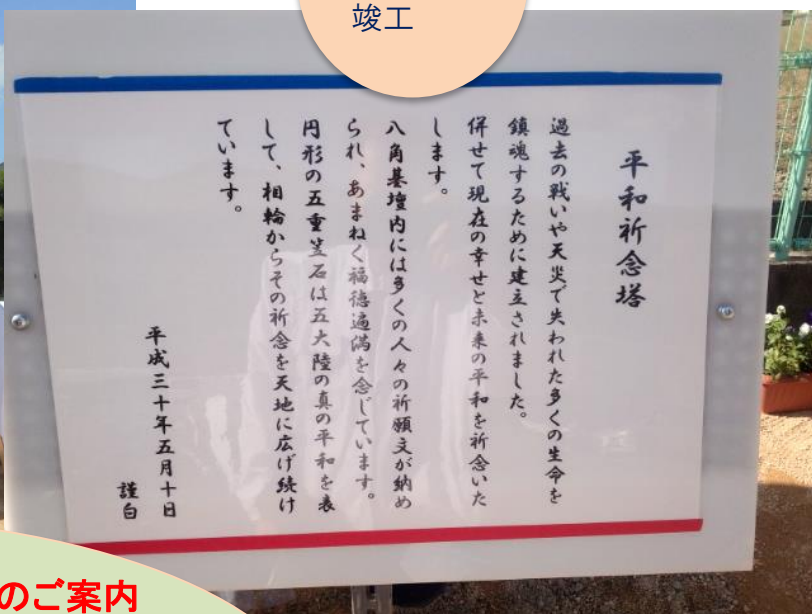 竣工
平和祈念塔
過去の戦いや天災で失われた多くの生命を
鎮魂するために建立されました。
併せて現在の幸せと未来の平和を祈念いた
します。
八角基壇内には多くの人々の祈願文が納め
られ、あまねく福徳遍満を念じています。
円形の五重笠石は五大陸の真の平和を表
して、相輪からその祈念を天地に広げ続け
ています。
平成三十年五月十日
謹白
のご案内